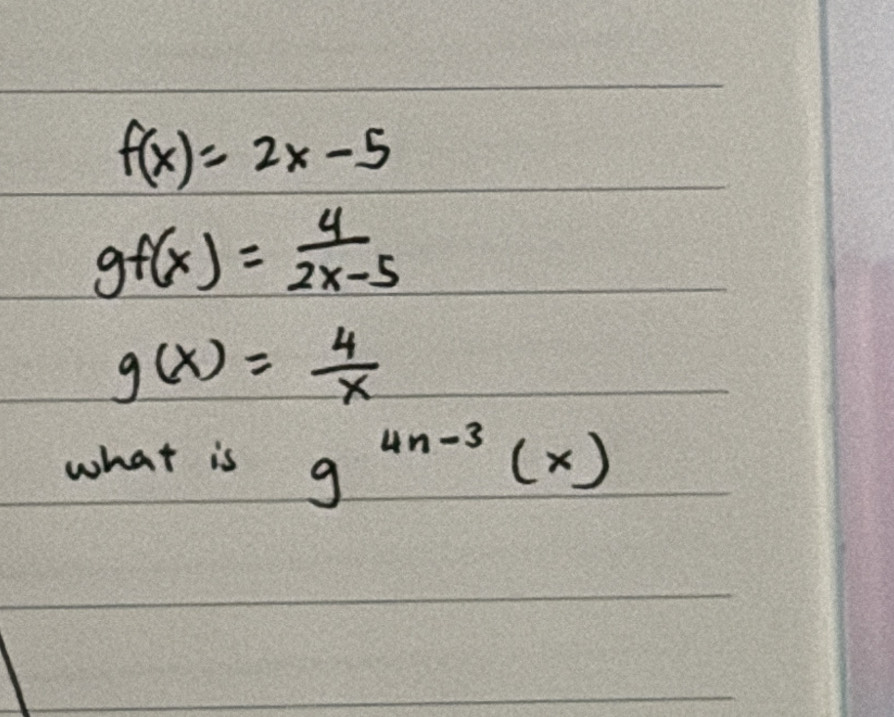 f(x) = 2x - 5
gf(x) = 4/(2x-5)
g(x) = 4/x
what is g^(4n-3) (x)